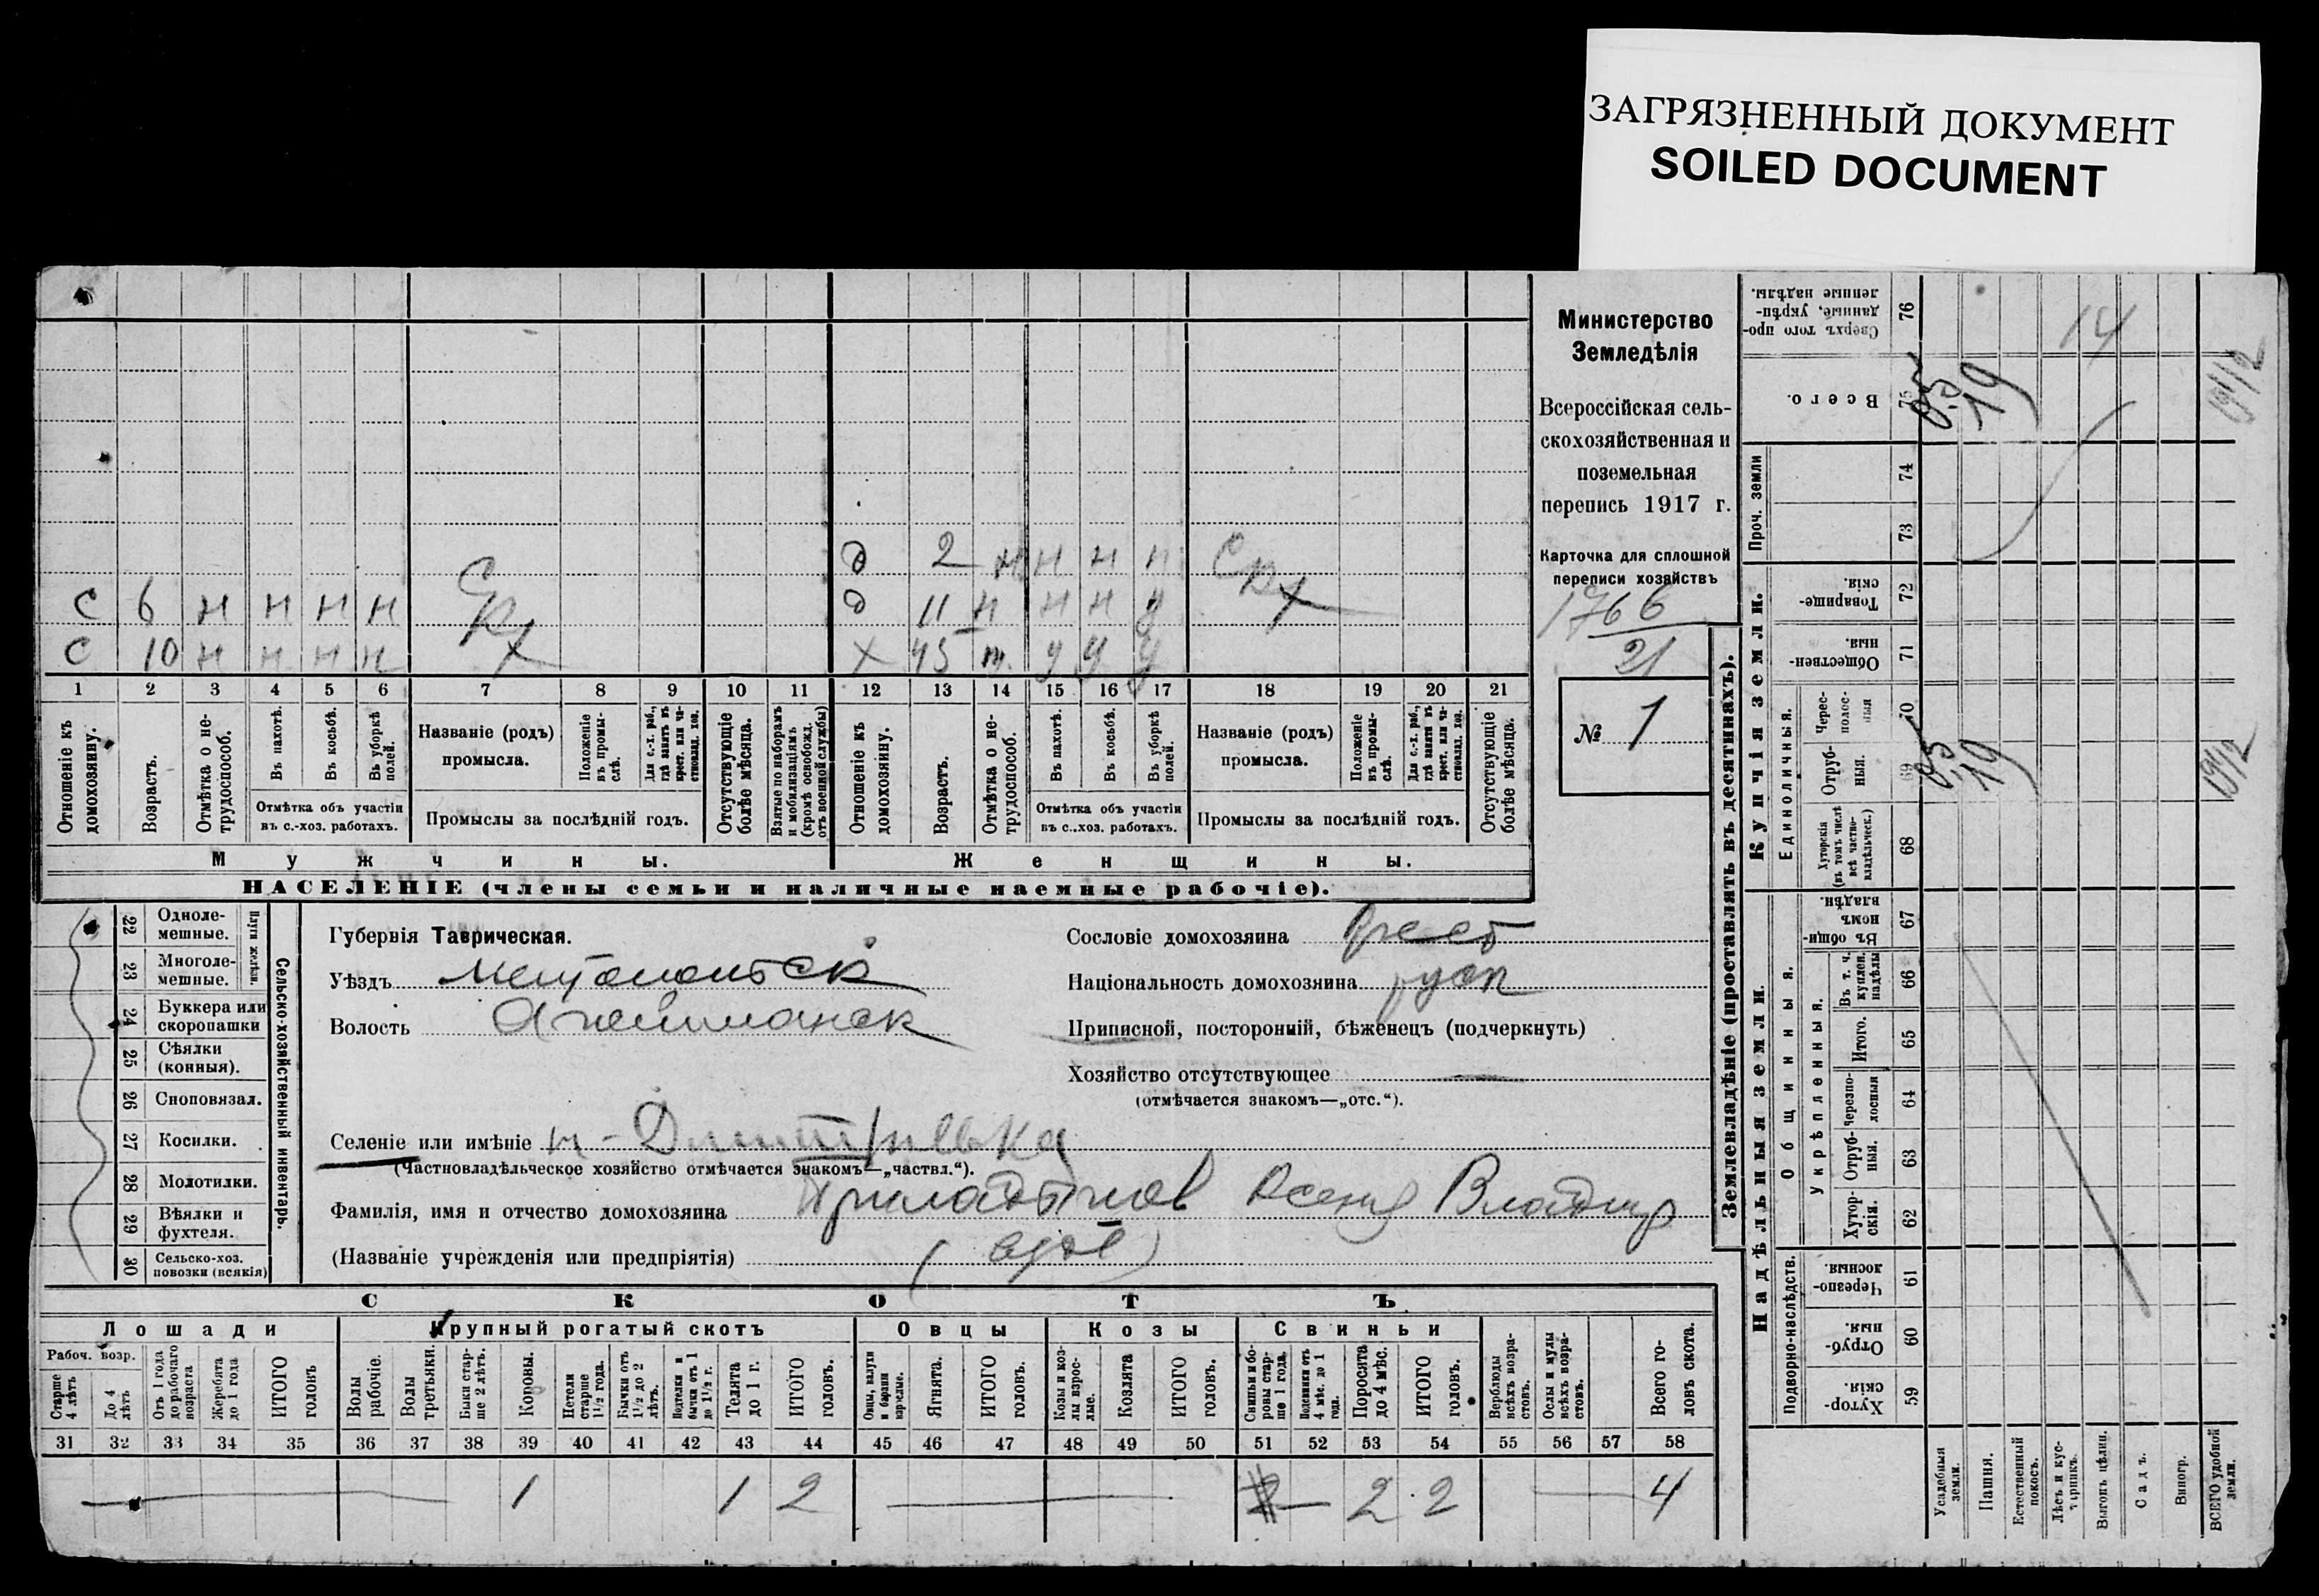 ЗАГРЯЗНЕННЫЙ ДОКУМЕНТ
SOILED DOCUMENT
Министерство
Земледѣлія
Всероссійская сель-
скохозяйственная и
поземельная
перепись 1917 г.
Карточка для сплошной
переписи хозяйствъ
1766
21
№ 1
д 2 н н н н С
с 6 н н н н С д 11 н н н у
с 10 н н н н х 45 т. у у у
1 2 3 4 5 6 7 8 9 10 11 12 13 14 15 16 17 18 19 20 21
Отношеніе къ домохозяину.
Возрастъ.
Отмѣтка о не-трудоспособ.
Въ пахотѣ.
Въ косьбѣ.
Въ уборкѣ полей.
Отмѣтка объ участіи въ с.-хоз. работахъ.
Названіе (родъ) промысла.
Положеніе въ промы-слѣ.
Для с.-х. раб., гдѣ занятъ въ крест. или ча-стновлад. хоз.
Промыслы за послѣдній годъ.
Отсутствующіе болѣе мѣсяца.
Взятые по наборамъ и мобилизаціямъ (кромѣ освобожд. отъ военной службы)
Отношеніе къ домохозяину.
Возрастъ.
Отмѣтка о не-трудоспособ.
Въ пахотѣ.
Въ косьбѣ.
Въ уборкѣ полей.
Отмѣтка объ участіи въ с.-хоз. работахъ.
Названіе (родъ) промысла.
Положеніе въ промы-слѣ.
Для с.-х. раб., гдѣ заняти въ крест. или ча-стновлад. хоз.
Промыслы за послѣдній годъ.
Отсутствующіе болѣе мѣсяца.
Мужчины. Женщины.
НАСЕЛЕНІЕ (члены семьи и наличные наемные рабочіе).
22 Одноле-мешные.
23 Многоле-мешные.
Плуги желѣзн.
24 Буккера или скоропашки
25 Сѣялки (конныя).
26 Сноповязал.
27 Косилки.
28 Молотилки.
29 Вѣялки и фухтеля.
30 Сельско-хоз. повозки (всякія)
Сельско-хозяйственный инвентарь.
Губернія Таврическая.
Уѣздъ
Волость
Селеніе или имѣніе н-Дмитріевка
(Частновладѣльческое хозяйство отмѣчается знакомъ—„частвл.“).
Фамилія, имя и отчество домохозяина
(Названіе учрежденія или предпріятія)
Сословіе домохозяина крест
Національность домохозяина русск
Приписной, посторонній, бѣженецъ (подчеркнуть)
Хозяйство отсутствующее —
(отмѣчается знакомъ—„отс.“).
СКОТЪ
Лошади Крупный рогатый скотъ Овцы Козы Свиньи
Рабоч. возр.
Старше 4 лѣтъ
До 4 лѣтъ
Отъ 1 года до рабочаго возраста
Жеребята до 1 года
ИТОГО головъ
Волы рабочіе.
Волы третьяки.
Быки стар-ше 2 лѣтъ.
Коровы.
Нетели старше 1½ года.
Бычки отъ 1½ до 2 лѣтъ.
Подтелки и бычки отъ 1 до 1½ г.
Телята до 1 г.
ИТОГО головъ.
Овцы, валухи и бараны взрослые.
Ягнята.
ИТОГО головъ.
Козы и коз-лы взрос-лые.
Козлята
ИТОГО головъ.
Свиньи и бо-ровы стар-ше 1 года.
Подсвинки отъ 4 мѣс. до 1 года.
Поросята до 4 мѣс.
ИТОГО головъ.
Верблюды всѣхъ возра-стовъ.
Ослы и мулы всѣхъ возра-стовъ.
Всего го-ловъ скота.
31 32 33 34 35 36 37 38 39 40 41 42 43 44 45 46 47 48 49 50 51 52 53 54 55 56 57 58
1 1 2 2 2 4
Землевладѣніе (проставлять въ десятинахъ).
Сверхъ того про-данные, укрѣп-ленные надѣлы. 76 14
Всего. 75 0,5 19 19½
Проч. земли 74
73
Купчія земли.
Товарище-скія. 72
Обществен-ныя. 71
Единоличныя.
Черес-полос-ныя 70
Отруб-ныя. 69 0,5 19 19½
Хуторскія (въ томъ числѣ всѣ частно-владѣльческ.) 68
Надѣльныя земли.
Общинныя.
Въ общин-номъ владѣн. 67
Укрѣпленныя.
Въ т. ч. куплен. надѣлы 66
Итого. 65
Черезпо-лосныя 64
Отруб-ныя. 63
Хутор-скія. 62
Подворно-наслѣдств.
Черезпо-лосныя. 61
Отруб-ныя. 60
Хутор-скія. 59
Усадебныя земли.
Пашня.
Естественный покосъ.
Лѣсъ и кус-тарникъ.
Выгонъ цѣлин.
Садъ.
Виногр.
ВСЕГО удобной земли.